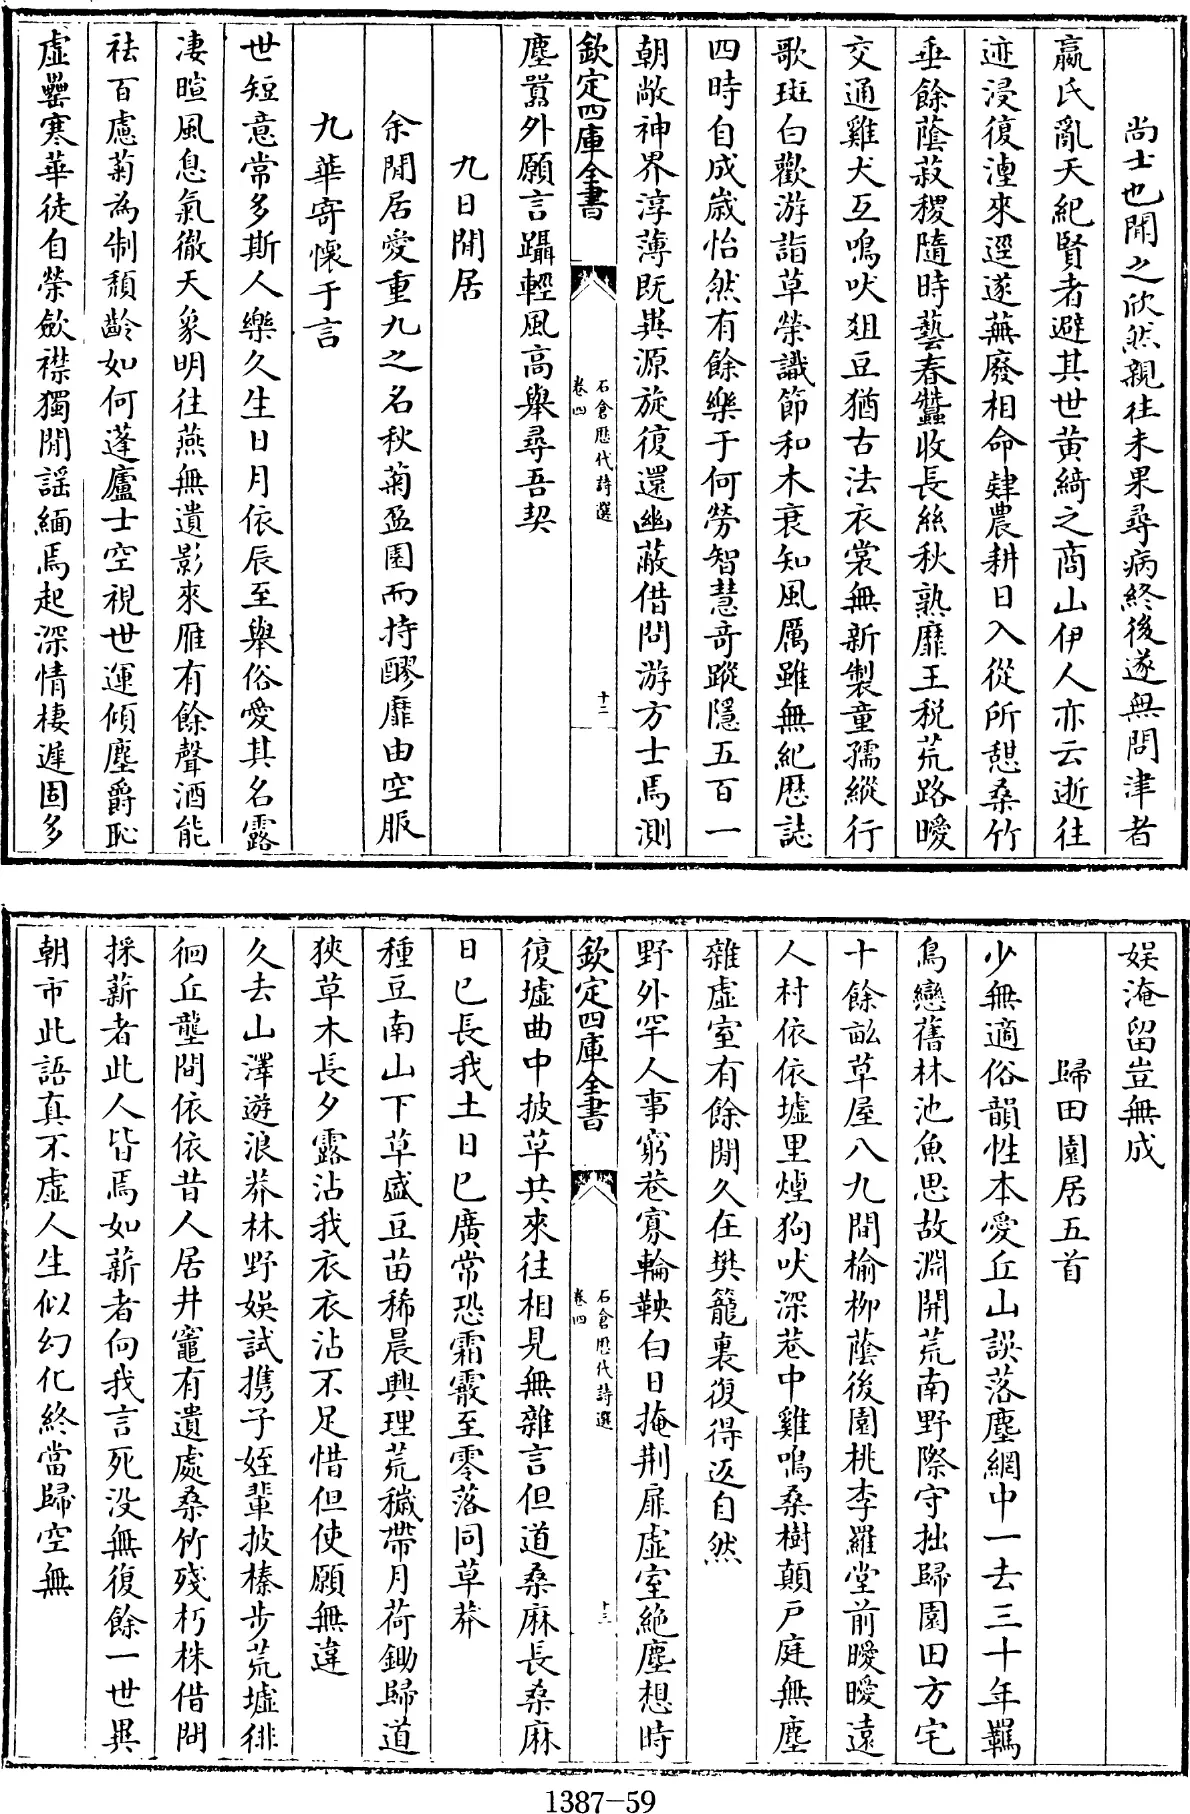 尚士也聞之欣然親往未果尋病終後遂無問津者
嬴氏亂天紀賢者避其世黄綺之商山伊人亦云逝往
迹浸復湮來逕遂蕪廢相命肄農耕日入從所憇桑竹
垂餘蔭菽稷隨時藝春蠶收長絲秋熟靡王税荒路曖
交通雞犬互鳴吠俎豆猶古法衣裳無新製童孺縱行
歌斑白歡游詣草榮識節和木衰知風厲雖無紀厯誌
四時自成歲怡然有餘樂于何勞智慧竒蹤隱五百一
朝敞神界淳薄既異源旋復還幽蔽借問游方士焉測
欽定四庫全書
石倉歴代詩選
卷四
十二
塵嚣外願言躡輕風高舉尋吾契
九日閒居
余閒居愛重九之名秋菊盈園而持醪靡由空服
九華寄懷于言
世短意常多斯人樂久生日月依辰至舉俗愛其名露
凄暄風息氣徹天象明往燕無遺影來雁有餘聲酒能
祛百慮菊為制頽齡如何蓬廬士空視世運傾塵爵恥
虚罍寒華徒自榮斂襟獨閒謡緬焉起深情棲遲固多
娱淹留豈無成
歸田園居五首
少無適俗韻性本愛丘山誤落塵網中一去三十年羈
鳥戀舊林池魚思故淵開荒南野際守拙歸園田方宅
十餘畝草屋八九間榆柳蔭後園桃李羅堂前曖曖遠
人村依依墟里煙狗吠深巷中雞鳴桑樹顛户庭無塵
雜虚室有餘閒久在樊籠裏復得返自然
野外罕人事窮巷寡輪鞅白日掩荆扉虚室絶塵想時
欽定四庫全書
石倉歴代詩選
卷四
十三
復墟曲中披草共來往相見無雜言但道桑麻長桑麻
日已長我土日已廣常恐霜霰至零落同草莽
種豆南山下草盛豆苗稀晨興理荒穢帶月荷鋤歸道
狹草木長夕露沾我衣衣沾不足惜但使願無違
久去山澤遊浪莽林野娱試携子姪輩披榛步荒墟徘
徊丘壟間依依昔人居井竈有遺處桑竹殘朽株借問
採薪者此人皆焉如薪者向我言死没無復餘一世異
朝市此語真不虚人生似幻化終當歸空無
1387-59